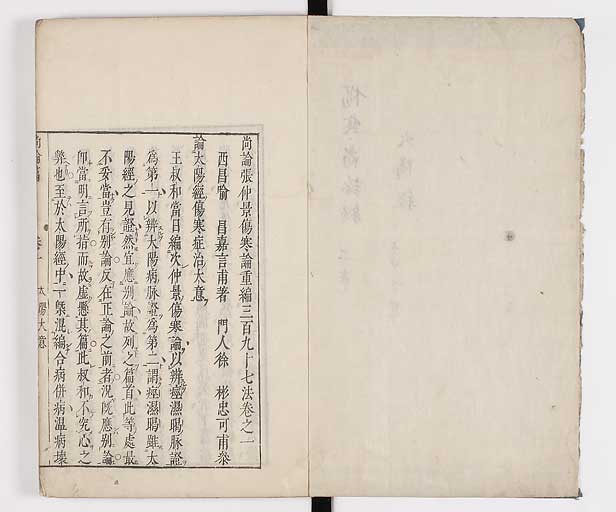 尚論張仲景傷寒論重編三百九十七法卷之一
西昌喻 昌嘉言甫著 門人徐 彬忠可甫叅
論太陽經傷寒症治大意
王叔和當日編次仲景傷寒論以辨痙濕暍脉證
為第一以辨太陽病脉證為第二謂痙濕暍雖太
陽經之見證然宜應别論故列之篇首此等處最
不妥當豈有别論反在正論之前者況旣應别論
即當明言所指而故虚懸其篇此叔和不究心之
弊也至於太陽經中一槩混編合病併病温病壞
尚論篇 卷一 太陽大意
傷寒尚論
太陽